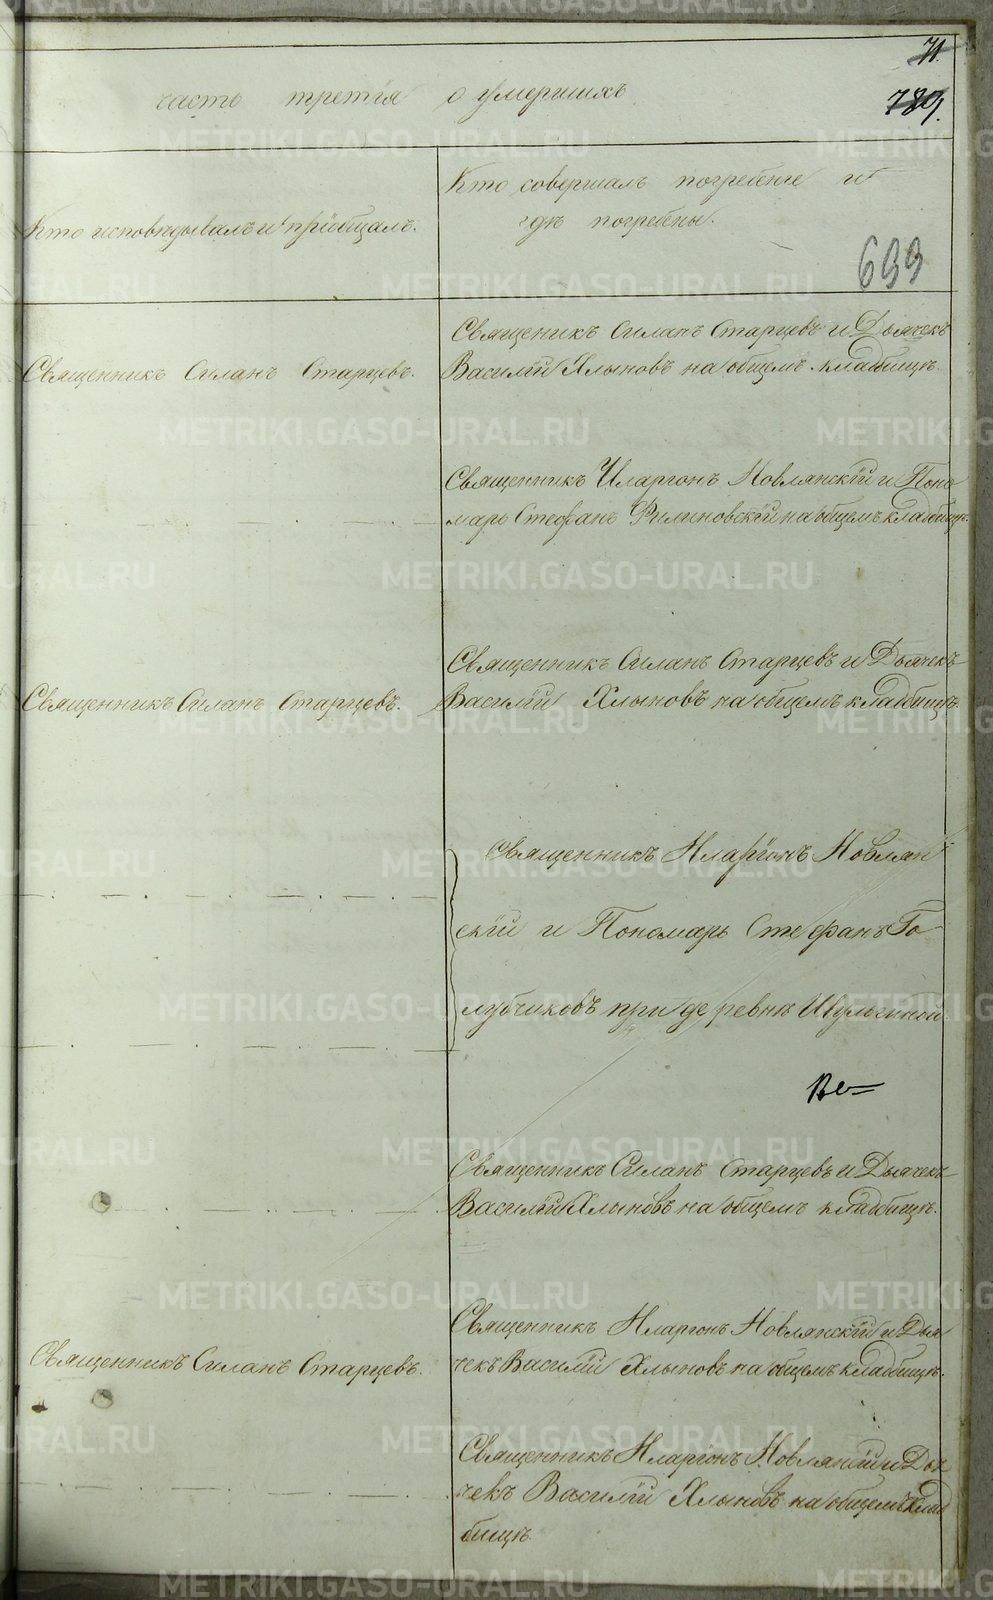 71.
789.
часть третія о умершихъ
Кто исповѣдывалъ и пріобщалъ.
Кто совершалъ погребеніе и
гдѣ погребены.
699
Священникъ Силанъ Старцевъ.
Священикъ Силанъ Старцевъ и Дьячекъ
Василій Хлыновъ на общемъ кладбищѣ.
Священникъ Иларіонъ Новлянскій и Поно
марь Стефанъ Филиновскій на общемъ кладбищѣ.
Священникъ Силанъ Старцевъ.
Священникъ Силанъ Старцевъ и Дьячекъ
Василій Хлыновъ на общемъ кладбищѣ.
Священникъ Иларіонъ Новлян
скій и Пономарь Стефанъ Го
лубчиковъ при деревнѣ Шульгиной
Священникъ Силанъ Старцевъ и Дьячекъ
Василій Хлыновъ на общемъ кладбищѣ.
Священникъ Силанъ Старцевъ.
Священникъ Иларіонъ Новлянскій и Дья
чекъ Василій Хлыновъ на общемъ кладбищѣ.
Священникъ Иларіонъ Новлянскій и Дья
чекъ Василій Хлыновъ на общемъ клад
бищѣ.
METRIKI.GASO-URAL.RU